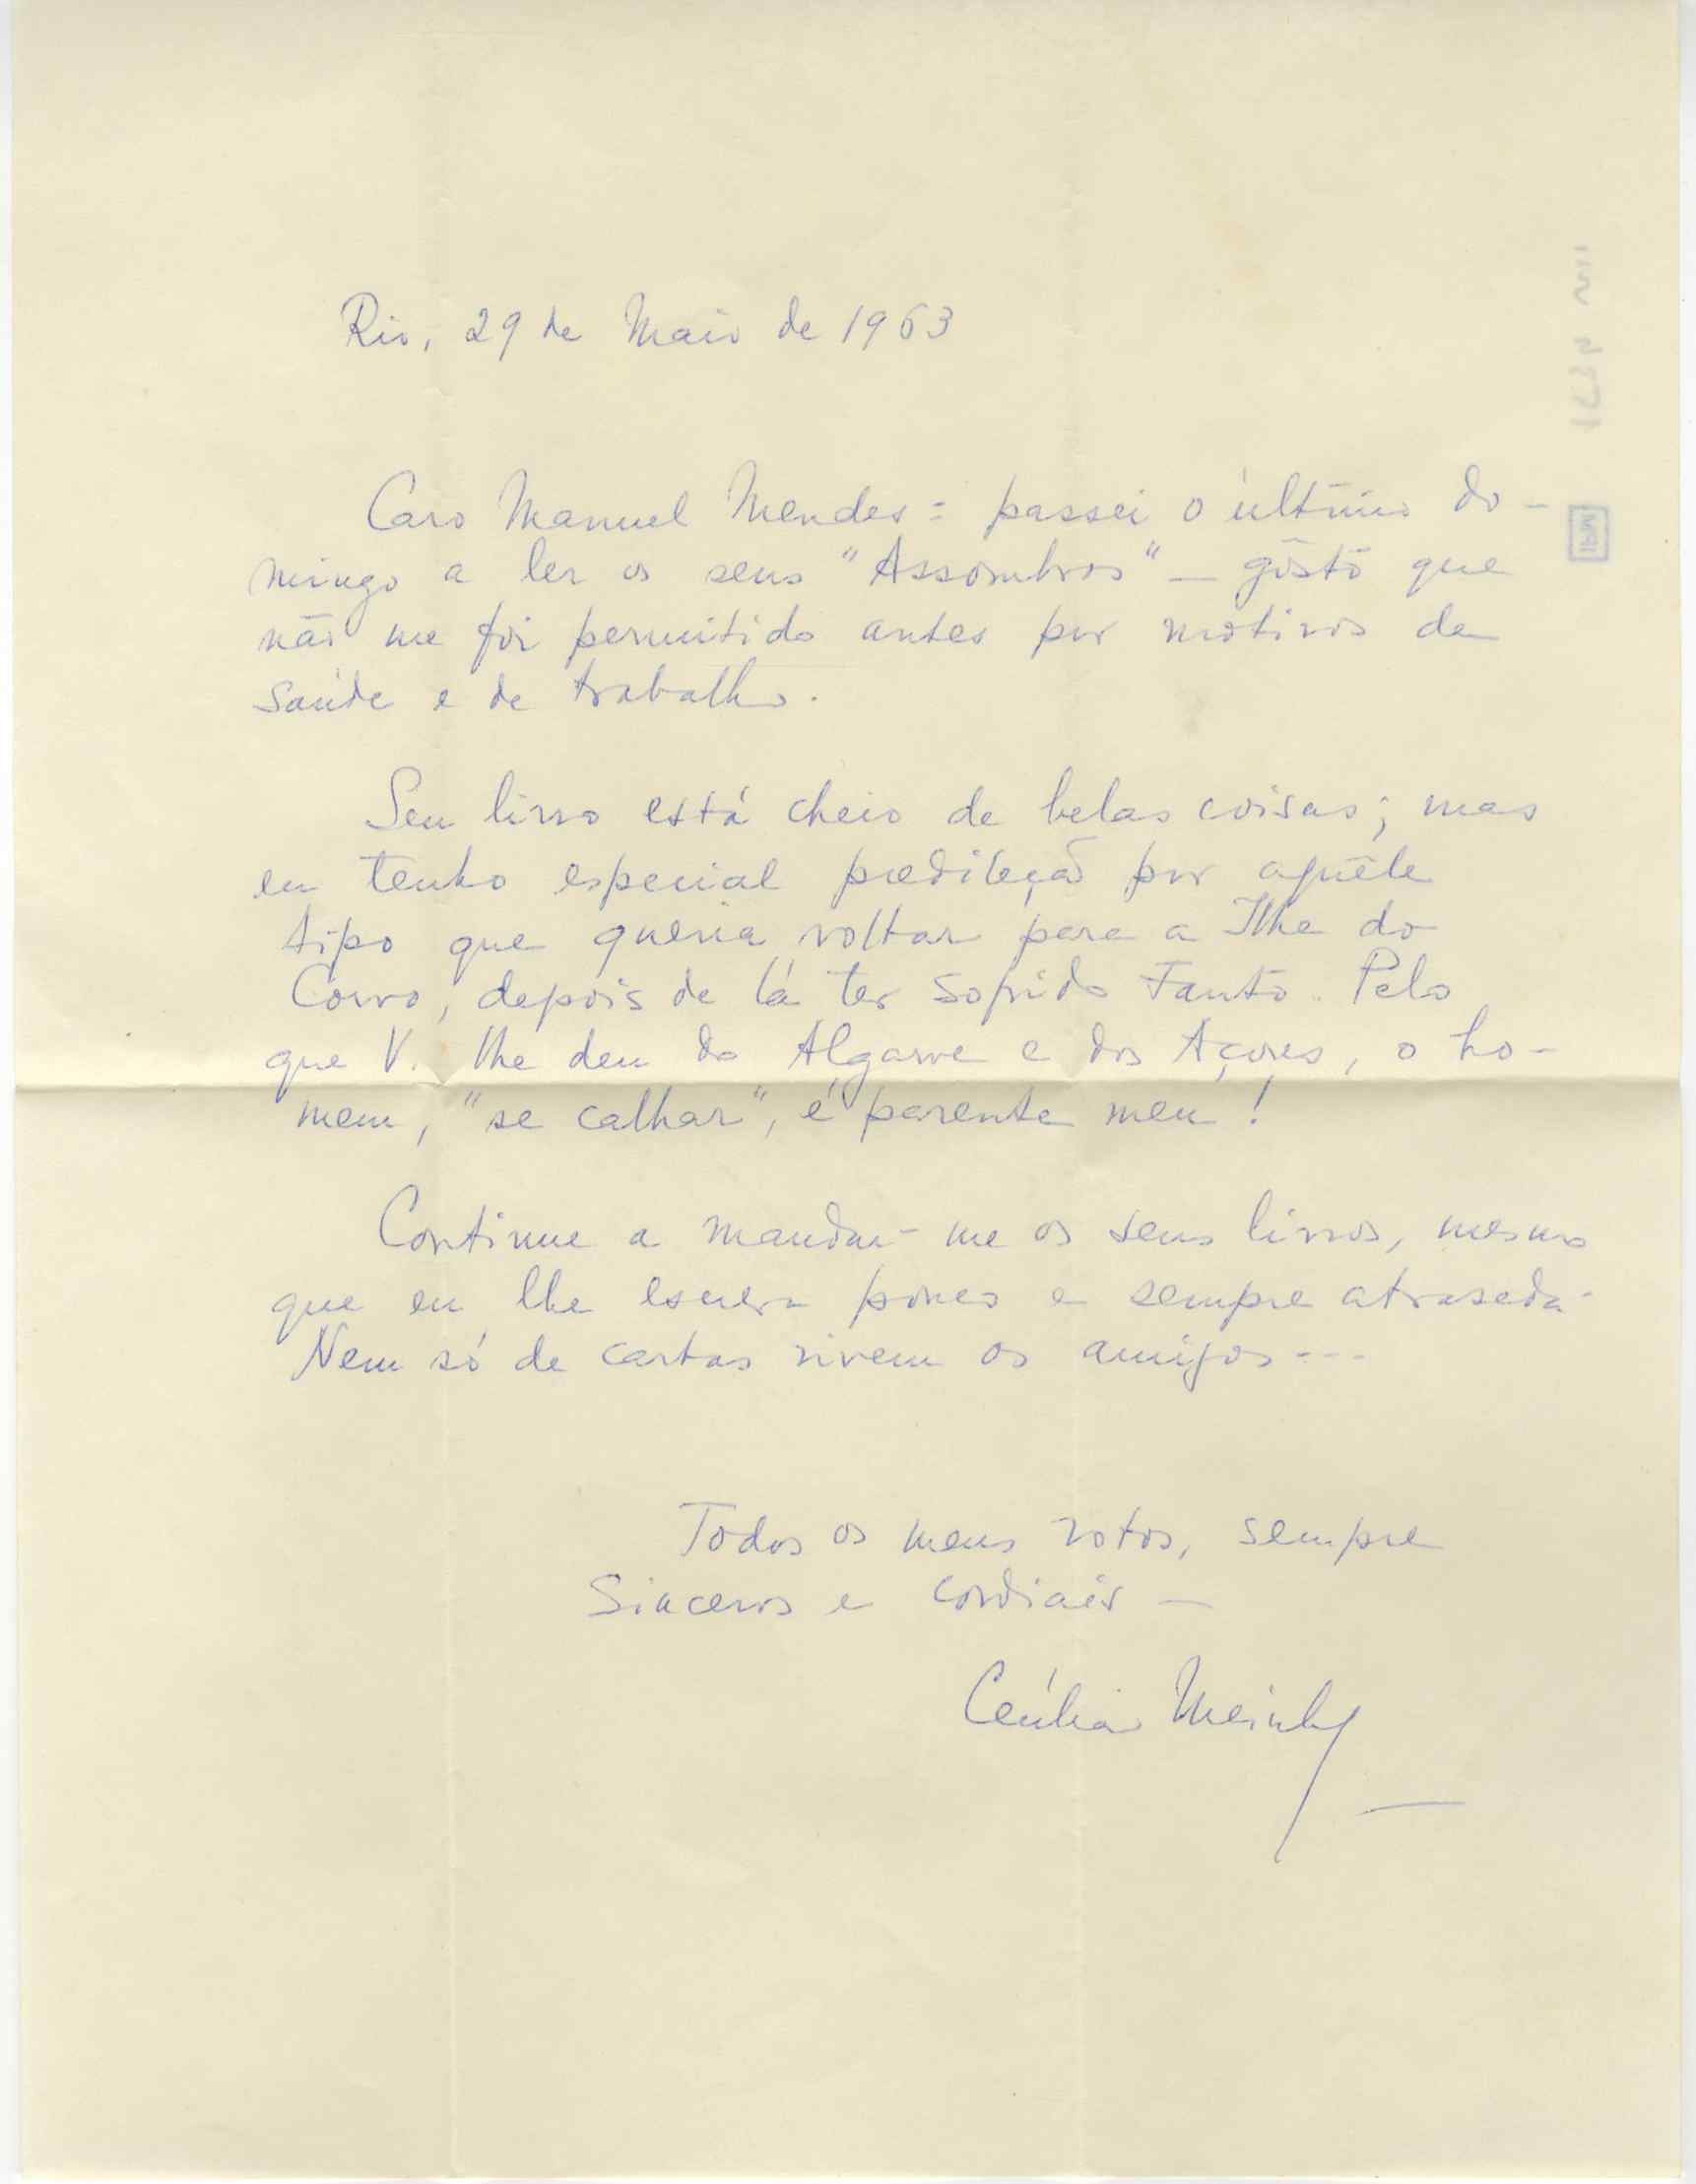 Rio, 29 de Maio de 1963
Caro Manuel Mendes: passei o último do-
mingo a ler os seus "Assombros" — gôsto que
não me foi permitido antes por motivos de
saúde e de trabalho.
Seu livro está cheio de belas coisas; mas
eu tenho especial predileção por aquêle
tipo que queria voltar para a Ilha do
Corvo, depois de lá ter sofrido tanto. Pelo
que V. lhe deu do Algarve e dos Açores, o ho-
mem, "se calhar", é parente meu!
Continue a mandar-me os seus livros, mesmo
que eu lhe escreva pouco e sempre atrasada.
Nem só de cartas vivem os amigos...
Todos os meus votos, sempre
sinceros e cordiais —
Cecília Meireles